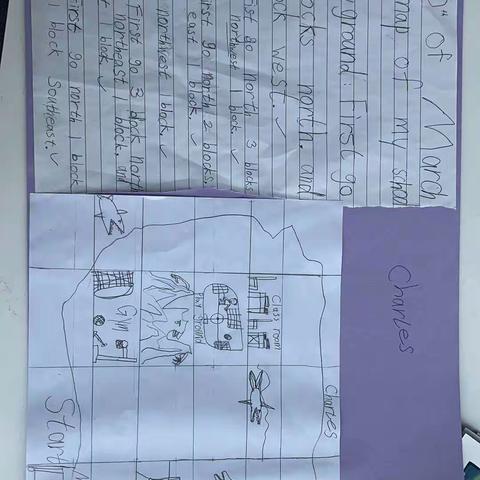 of March
map of my school
ground: First go
ocks north. and
ock west. ✓
First go north 3 blocks
northwest 1 block. ✓
First go north 2 blocks.
east 1 block. ✓
northwest 1 block. ✓
First go 3 block north
northeast 1 block. and
1 block. ✓
First go north 1 block
1 block southeast. ✓
Charles
Charles
Class room
Play ground
Gym
Start
N